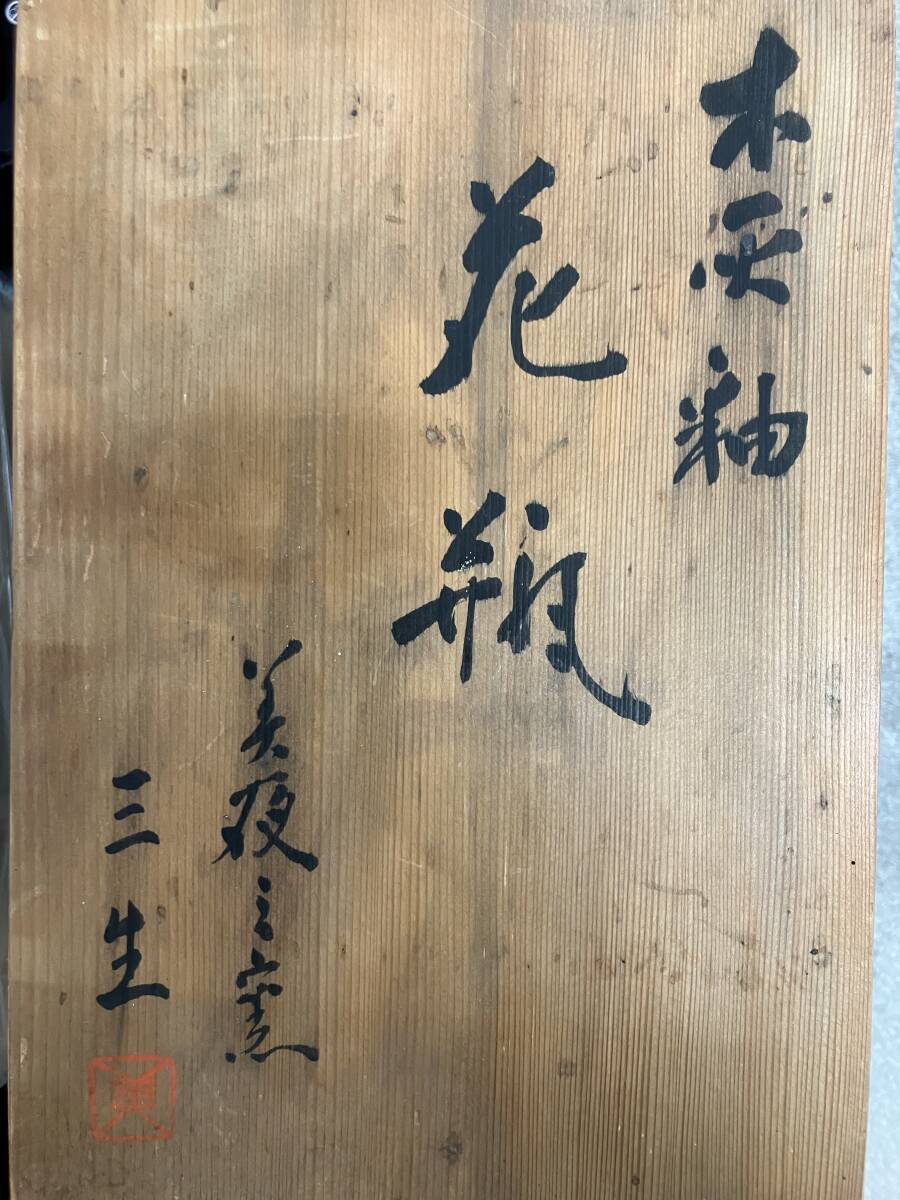 木灰釉
花瓶
美夜之窯
三生